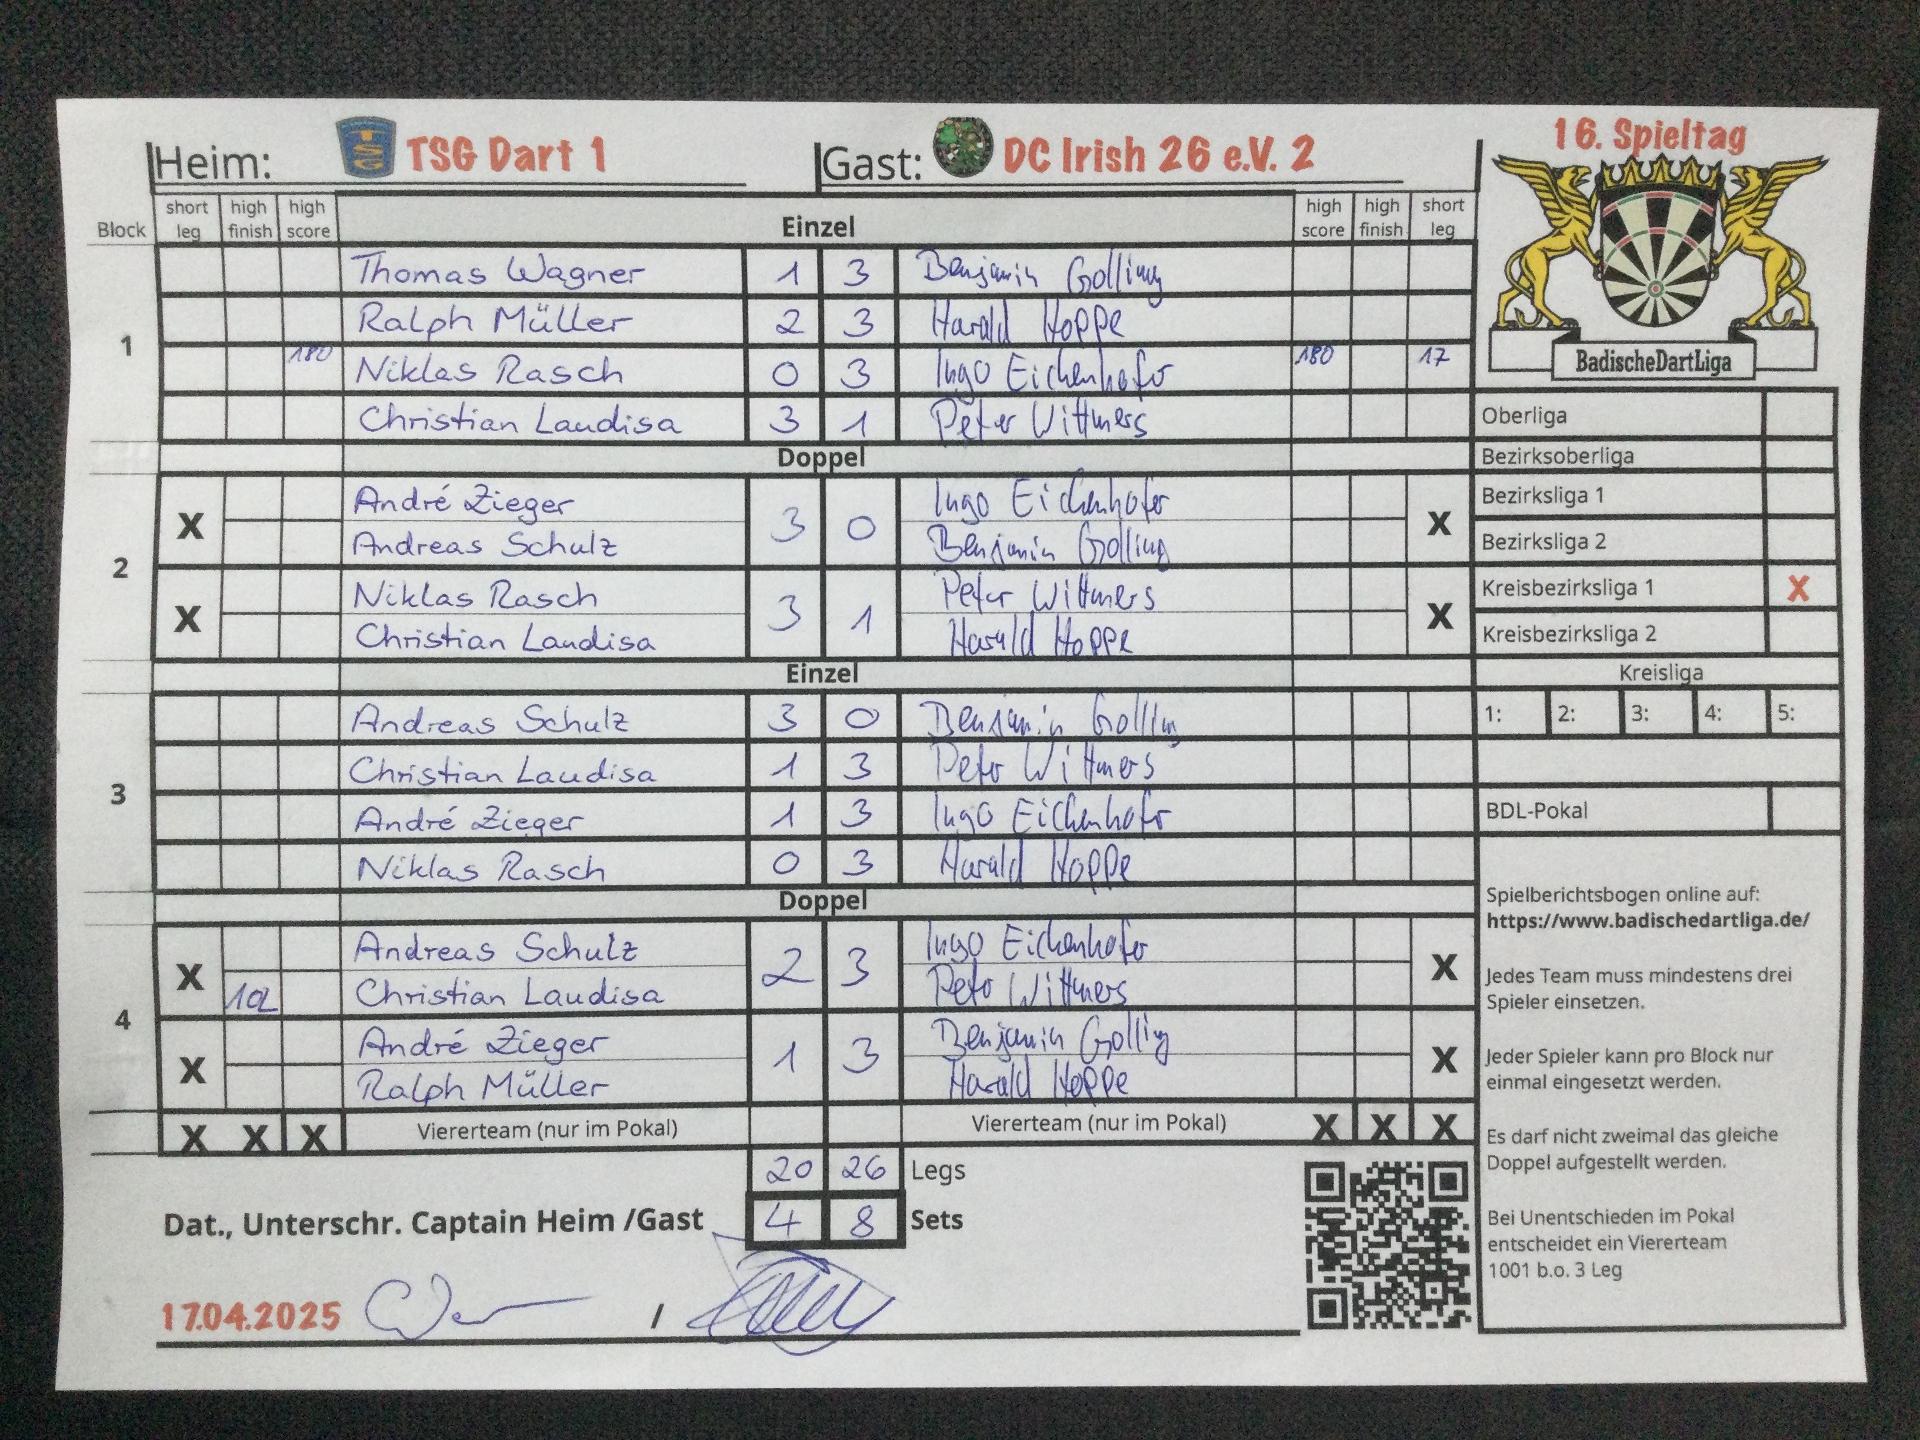 16. Spieltag
Heim: TSG TSG Dart 1 Gast: DC Irish 26 e.V. 2
Block short leg high finish high score Einzel high score high finish short leg
1
Thomas Wagner 1 3 Benjamin Golling
Ralph Müller 2 3 Harald Hoppe
180 Niklas Rasch 0 3 Ingo Eichenhofer 180 17
Christian Laudisa 3 1 Peter Wittmers
Doppel
2
X André Zieger 3 0 Ingo Eichenhofer X
Andreas Schulz Benjamin Golling
X Niklas Rasch 3 1 Peter Wittmers X
Christian Laudisa Harald Hoppe
Einzel
3
Andreas Schulz 3 0 Benjamin Golling
Christian Laudisa 1 3 Peter Wittmers
André Zieger 1 3 Ingo Eichenhofer
Niklas Rasch 0 3 Harald Hoppe
Doppel
4
X Andreas Schulz 2 3 Ingo Eichenhofer X
102 Christian Laudisa Peter Wittmers
X André Zieger 1 3 Benjamin Golling X
Ralph Müller Harald Hoppe
X X X Viererteam (nur im Pokal) Viererteam (nur im Pokal) X X X
20 26 Legs
Dat., Unterschr. Captain Heim /Gast 4 8 Sets
17.04.2025 /
BadischeDartLiga
Oberliga
Bezirksoberliga
Bezirksliga 1
Bezirksliga 2
Kreisbezirksliga 1 X
Kreisbezirksliga 2
Kreisliga
1: 2: 3: 4: 5:
BDL-Pokal
Spielberichtsbogen online auf:
https://www.badischedartliga.de/
Jedes Team muss mindestens drei
Spieler einsetzen.
Jeder Spieler kann pro Block nur
einmal eingesetzt werden.
Es darf nicht zweimal das gleiche
Doppel aufgestellt werden.
Bei Unentschieden im Pokal
entscheidet ein Viererteam
1001 b.o. 3 Leg